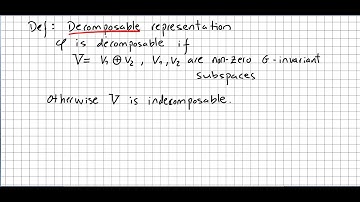 Def: Decomposable representation
φ is decomposable if
V = V₁ ⊕ V₂ , V₁, V₂ are non-zero G-invariant
subspaces
Otherwise V is indecomposable.